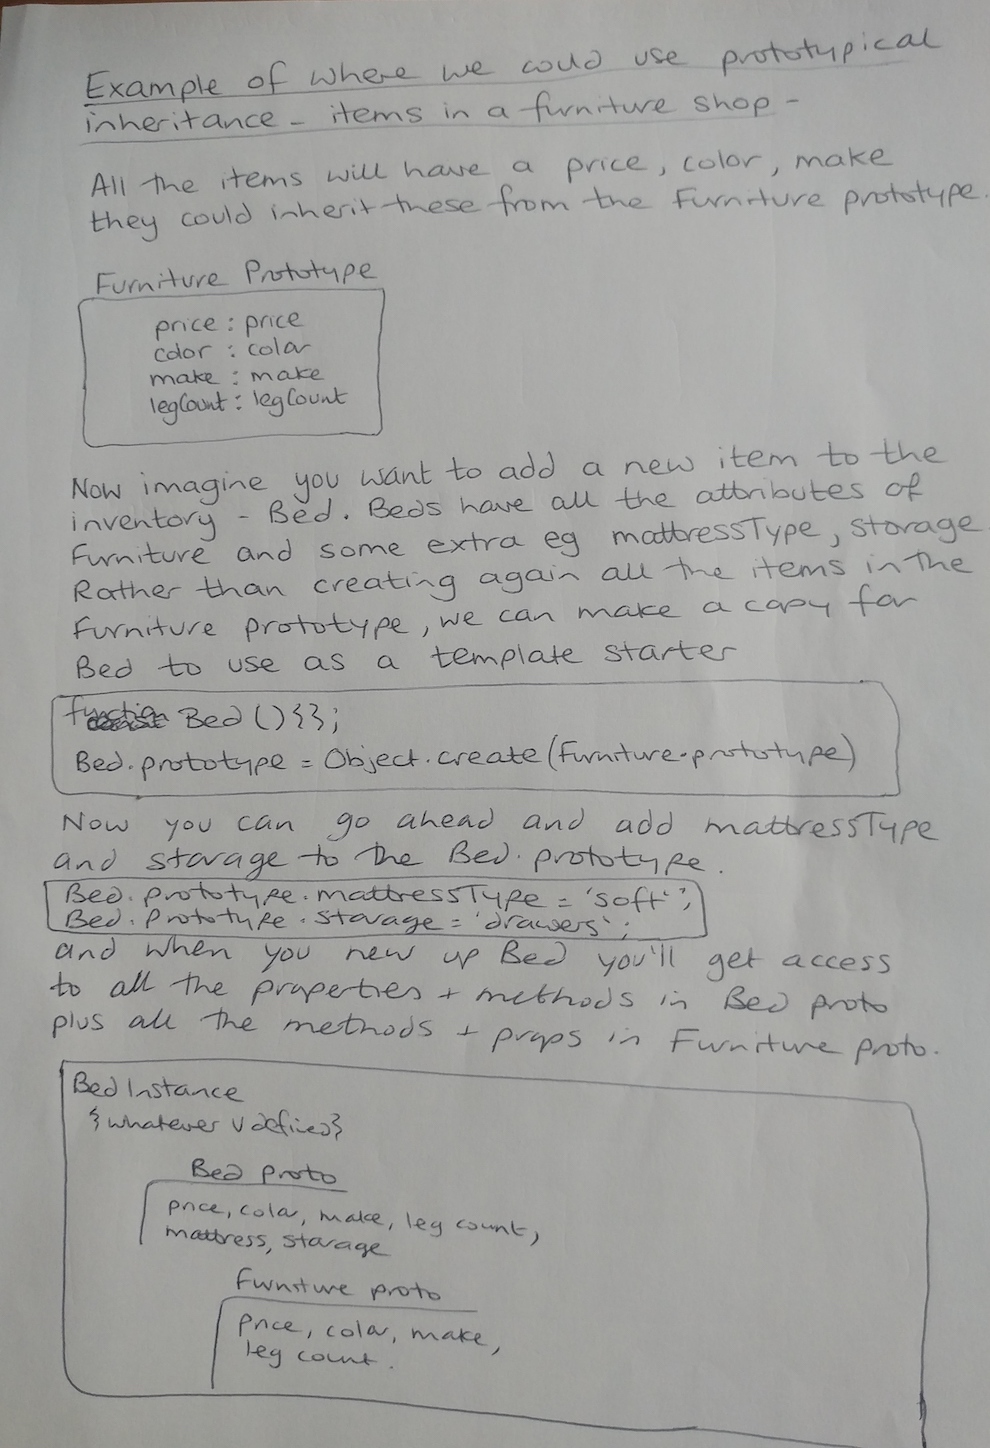 Example of where we could use prototypical
inheritance - items in a furniture shop -
All the items will have a price, color, make
they could inherit these from the Furniture prototype.
Furniture Prototype
price : price
color : color
make : make
legCount : legCount
Now imagine you want to add a new item to the
inventory - Bed. Beds have all the attributes of
Furniture and some extra eg mattressType, storage
Rather than creating again all the items in the
Furniture prototype, we can make a copy for
Bed to use as a template starter
function Bed(){};
Bed.prototype = Object.create(Furniture.prototype)
Now you can go ahead and add mattressType
and storage to the Bed.prototype.
Bed.prototype.mattressType = 'soft';
Bed.Prototype.storage = 'drawers';
and when you new up Bed you'll get access
to all the properties + methods in Bed proto
plus all the methods + props in Furniture proto.
Bed Instance
{whatever u defined}
Bed proto
price, color, make, leg count,
mattress, storage
Furniture proto
price, color, make,
leg count.